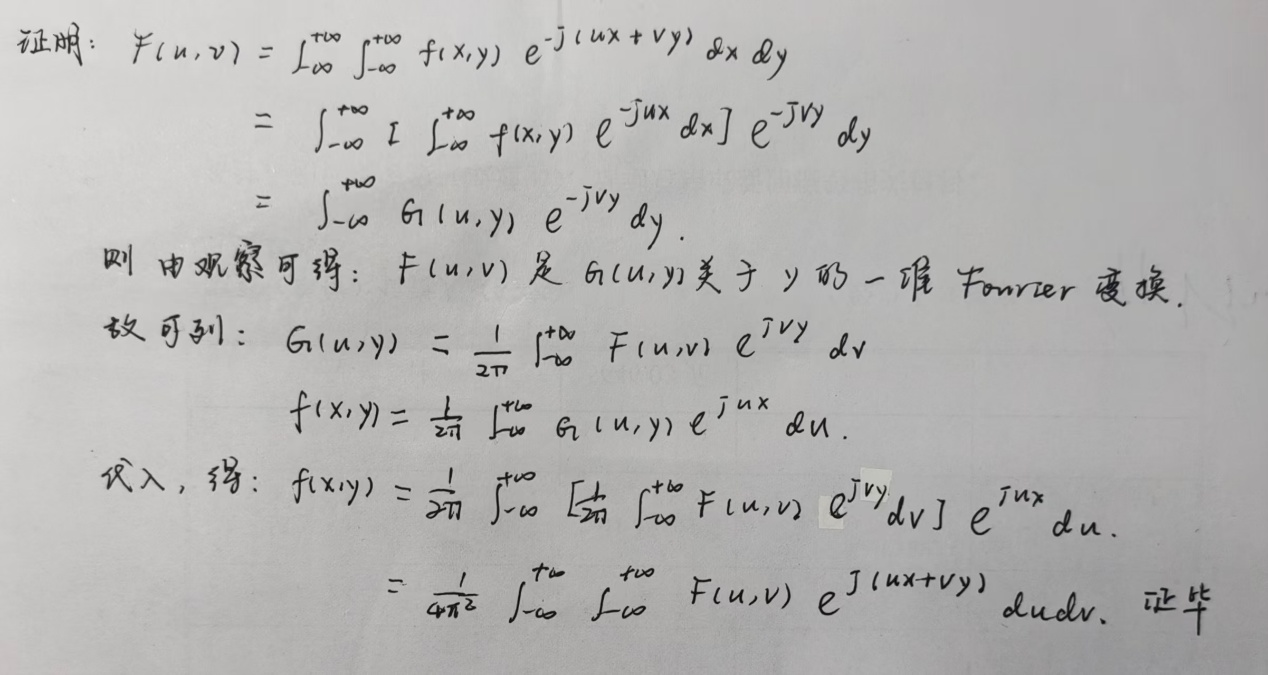 证明: F(u,v) = ∫_{-∞}^{+∞} ∫_{-∞}^{+∞} f(x,y) e^{-j(ux+vy)} dx dy
= ∫_{-∞}^{+∞} [ ∫_{-∞}^{+∞} f(x,y) e^{-jux} dx] e^{-jvy} dy
= ∫_{-∞}^{+∞} G(u,y) e^{-jvy} dy.
则由观察可得: F(u,v) 是 G(u,y) 关于 y 的一维 Fourier 变换.
故可列: G(u,y) = \frac{1}{2π} ∫_{-∞}^{+∞} F(u,v) e^{jvy} dv
f(x,y) = \frac{1}{2π} ∫_{-∞}^{+∞} G(u,y) e^{jux} du.
代入, 得: f(x,y) = \frac{1}{2π} ∫_{-∞}^{+∞} [\frac{1}{2π} ∫_{-∞}^{+∞} F(u,v) e^{jvy} dv] e^{jux} du.
= \frac{1}{4π^2} ∫_{-∞}^{+∞} ∫_{-∞}^{+∞} F(u,v) e^{j(ux+vy)} dudv. 证毕